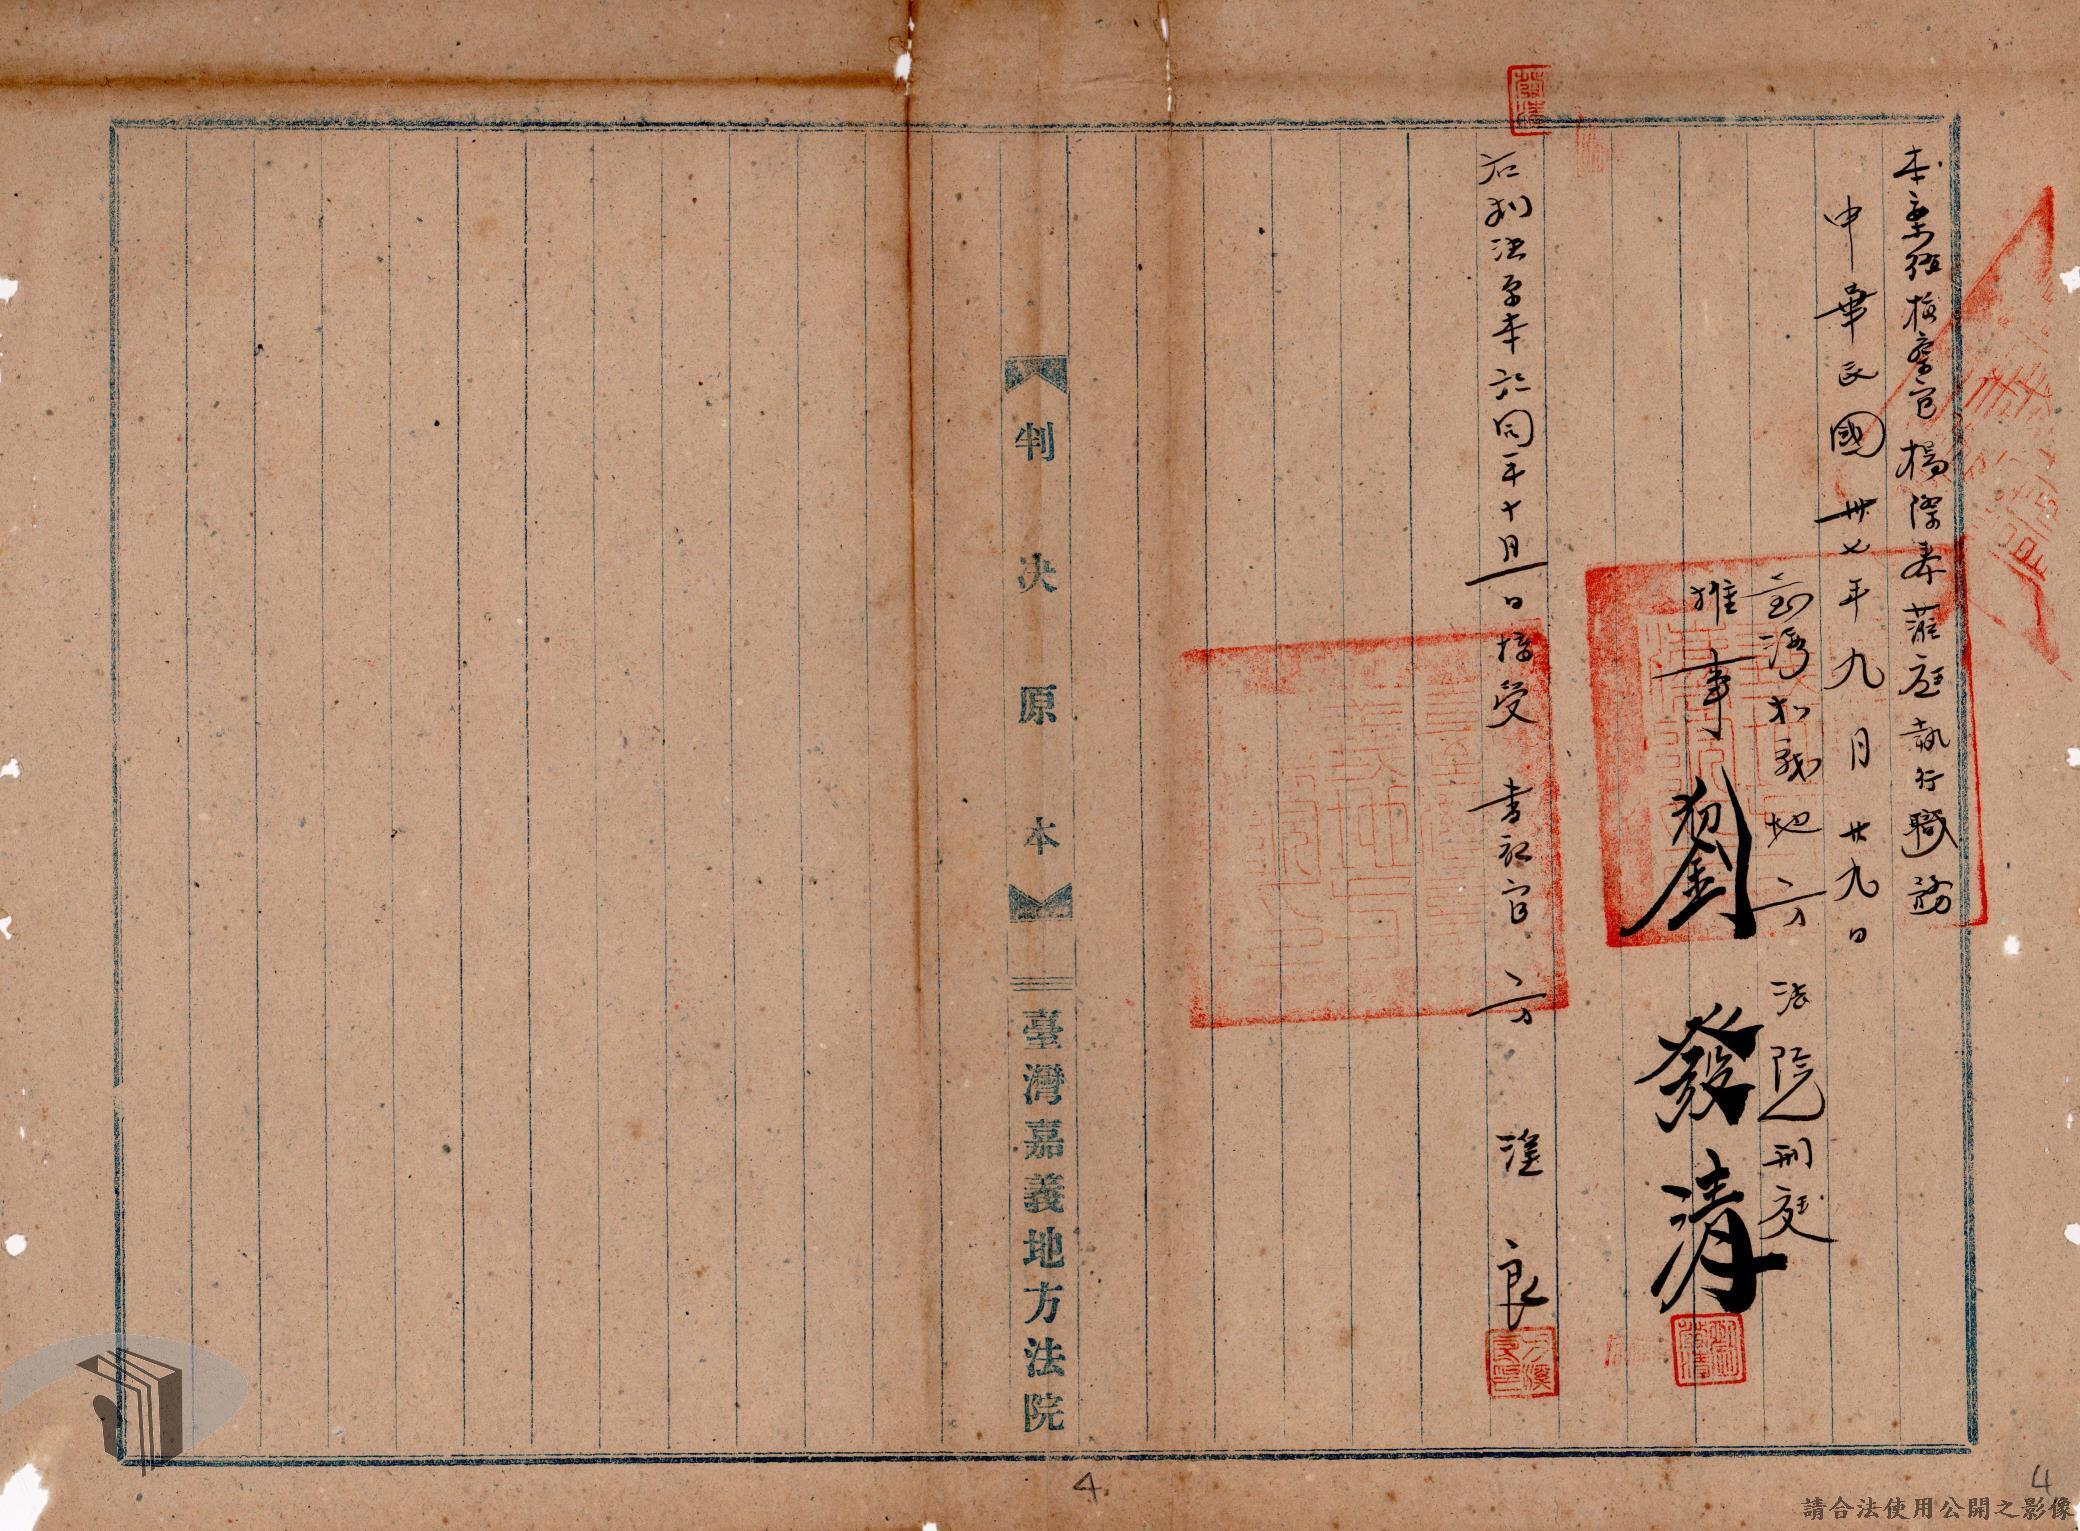 本案經檢察官楊際春蒞庭執行職務
中華民國卅七年九月廿九日
台灣嘉義地方法院刑庭
推事 劉發清
右判決原本於同年十月一日接受 書記官 方溪良
判決原本
臺灣嘉義地方法院
4
4
請合法使用公開之影像